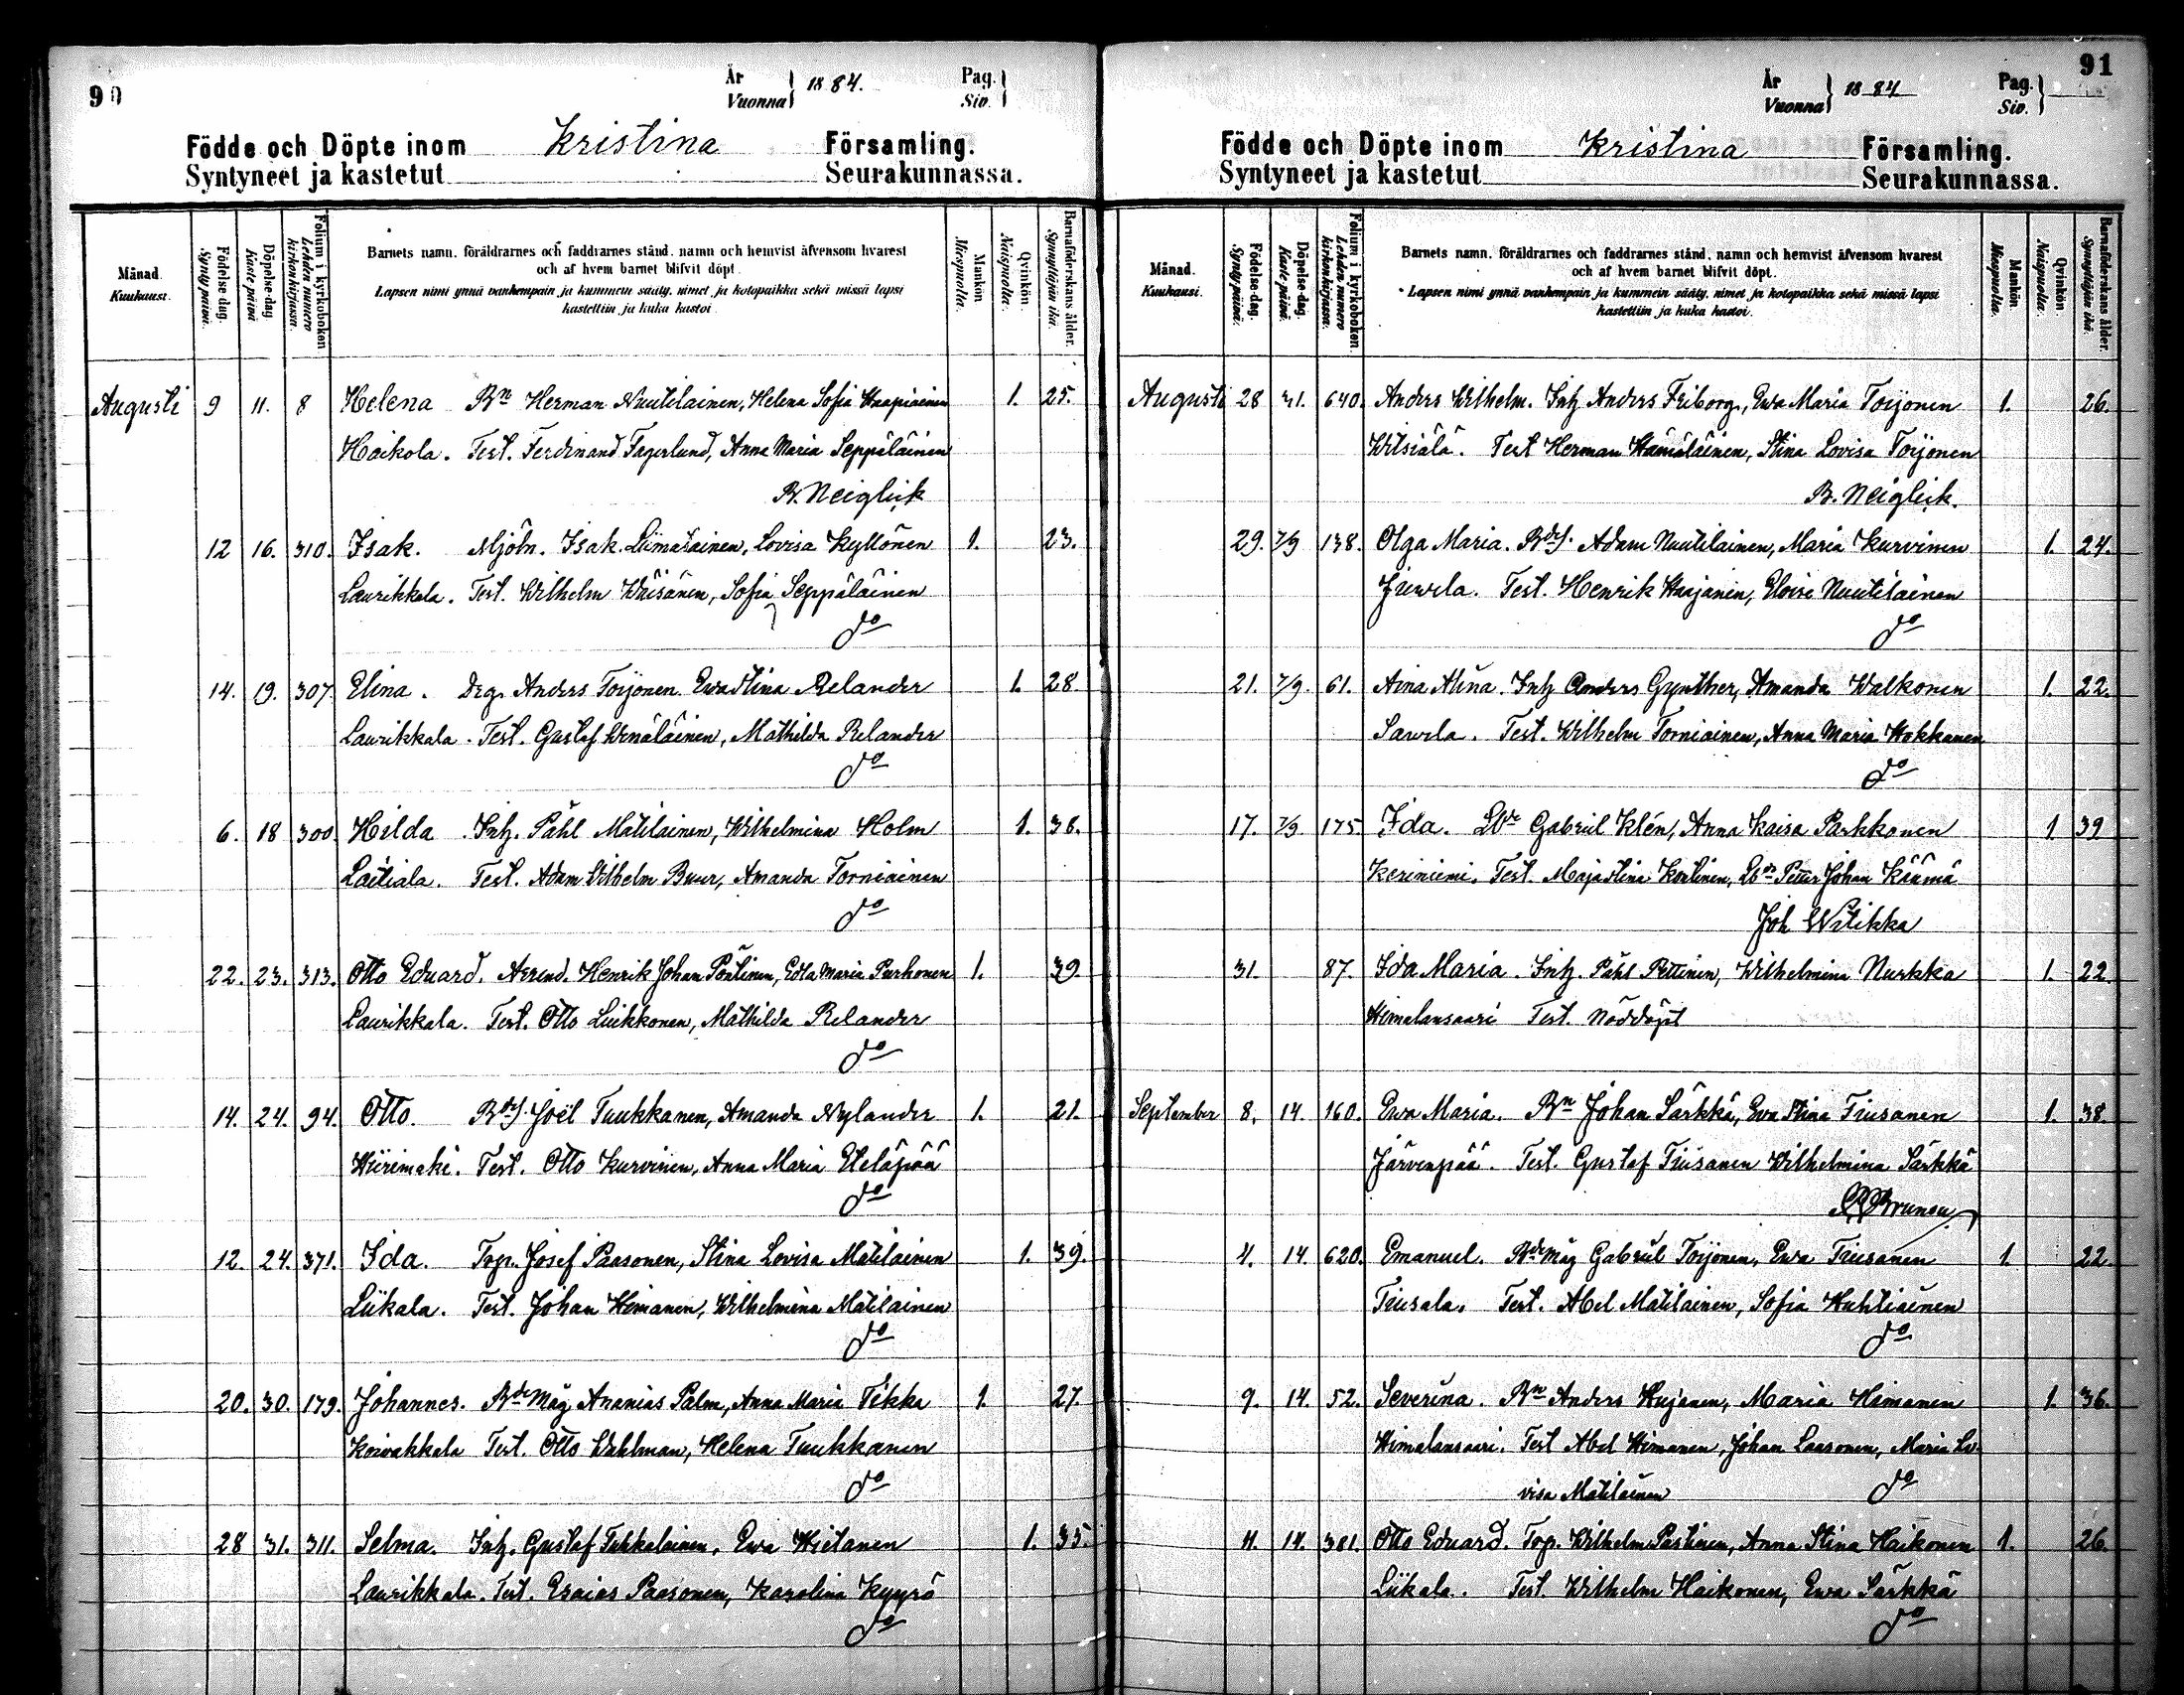 90
År
Vuonna } 1884.
Pag.
Siv. }
Födde och Döpte inom Kristina Församling.
Syntyneet ja kastetut Seurakunnassa.
Månad. Kuukausi.
Födelse dag. Synty päivä.
Döpelse-dag. Kaste päivä
Folium i kyrkoboken Lehden numero kirkonkirjassa.
Barnets namn, föräldrarnes och faddrarnes stånd, namn och hemvist äfvensom hvarest
och af hvem barnet blifvit döpt.
Lapsen nimi ynnä vanhempain ja kummein sääty, nimet ja kotopaikka sekä missä lapsi
kastettiin ja kuka kastoi.
Mankön Miespuolta.
Qvinkön. Naispuolta.
Barnaföderskans ålder. Synnyttäjän ikä.
Augusti 9 11. 8 Helena Bn Herman Nuutilainen, Helena Sofia Haapiainen 1. 25.
Haikola. Test. Ferdinand Fagerlund, Anna Maria Seppäläinen
B. Neiglick
12 16. 310. Isak. Mjöln. Isak Liimatainen, Lovisa Kyllönen 1. 23.
Laurikkala. Test. Wilhelm Wäisänen, Sofia Seppäläinen
do
14. 19. 307. Elina. Drg. Anders Toijonen Ewa Stina Relander 1. 28.
Laurikkala. Test. Gustaf Wenäläinen, Mathilda Relander
do
6. 18 300 Hilda Inh. Påhl Matilainen, Wilhelmina Holm 1. 38.
Laitiala. Test. Adam Wilhelm Buur, Amanda Torniainen
do
22. 23. 313. Otto Eduard. Arrend. Henrik Johan Pöntinen, Edla Maria Purhonen 1. 39.
Laurikkala. Test. Otto Liukkonen, Mathilda Relander
do
14. 24. 94. Otto. Bds. Joël Tuukkanen, Amanda Nylander 1. 21.
Hiirimäki. Test. Otto Kurvinen, Anna Maria Eteläpää
do
12. 24. 371. Ida. Torp. Josef Paasonen, Stina Lovisa Matilainen 1. 39.
Liikala. Test. Johan Himanen, Wilhelmina Matilainen
do
20. 30. 179. Johannes. Bde Måg Ananias Palm, Anna Maria Tikka 1. 27.
Koivakkala Test. Otto Wahlman, Helena Tuukkanen
do
28 31. 311. Selma. Inh. Gustaf Tahkalainen, Ewa Hietanen 1. 35.
Laurikkala. Test. Esaias Paasonen, Karolina Kyyrö
do
91
År
Vuonna } 1884
Pag.
Siv. }
Födde och Döpte inom Kristina Församling.
Syntyneet ja kastetut Seurakunnassa.
Månad. Kuukausi.
Födelse-dag. Synty päivä.
Döpelse-dag. Kaste päivä.
Folium i kyrkoboken. Lehden numero kirkonkirjassa.
Barnets namn, föräldrarnes och faddrarnes stånd, namn och hemvist äfvensom hvarest
och af hvem barnet blifvit döpt.
Lapsen nimi ynnä vanhempain ja kummein sääty, nimet ja kotopaikka sekä missä lapsi
kastettiin ja kuka kastoi.
Mankön Miespuolta.
Qvinkön Naispuolta.
Barnaföderskans ålder. Synnyttäjän ikä.
Augusti 28 31. 640. Anders Wilhelm. Inh Anders Friborg, Ewa Maria Toijonen 1. 26.
Witsiälä. Test Herman Hämäläinen, Stina Lovisa Toijonen
B. Neiglick.
29. 7/9 138. Olga Maria. Bds. Adam Nuutilainen, Maria Kurvinen 1. 24.
Juurela. Test. Henrik Haajanen, Eloise Nuutilainen
do
21. 7/9 61. Aina Alina. Inh Anders Gynther, Amanda Walkonen 1. 22.
Sawela. Test. Wilhelm Torniainen, Anna Maria Hokkanen
do
17. 7/9. 175. Ida. Gabriel Klén, Anna Kaisa Parkkonen 1 39
Keriniemi. Test. Maja Stina Kontinen, Petter Johan Käämä
Joh Witikka
31. 87. Ida Maria. Inh. Påhl Pettinen, Wilhelmina Nurkka 1. 22
Himalansaari Test. Nöddöpt
September 8. 14. 160. Ewa Maria. Bn Johan Särkkä, Ewa Stina Tiusanen 1. 38.
Järvenpää. Test. Gustaf Tiusanen Wilhelmina Särkkä
Brunou
4. 14. 620. Emanuel. Bde Måg Gabriel Toijonen, Ewa Tiusanen 1. 22
Tiusala. Test. Abel Matilainen, Sofia Huhtiainen
do
9. 14. 52. Severina. Bn Anders Hujanen, Maria Himanen 1. 36.
Himalansaari. Test Abel Himanen, Johan Laasonen, Maria Lo-
visa Matilainen do
11. 14. 381. Otto Eduard. Torp. Wilhelm Pästinen, Anna Stina Haikonen 1. 26.
Liikala. Test. Wilhelm Haikonen, Ewa Särkkä
do